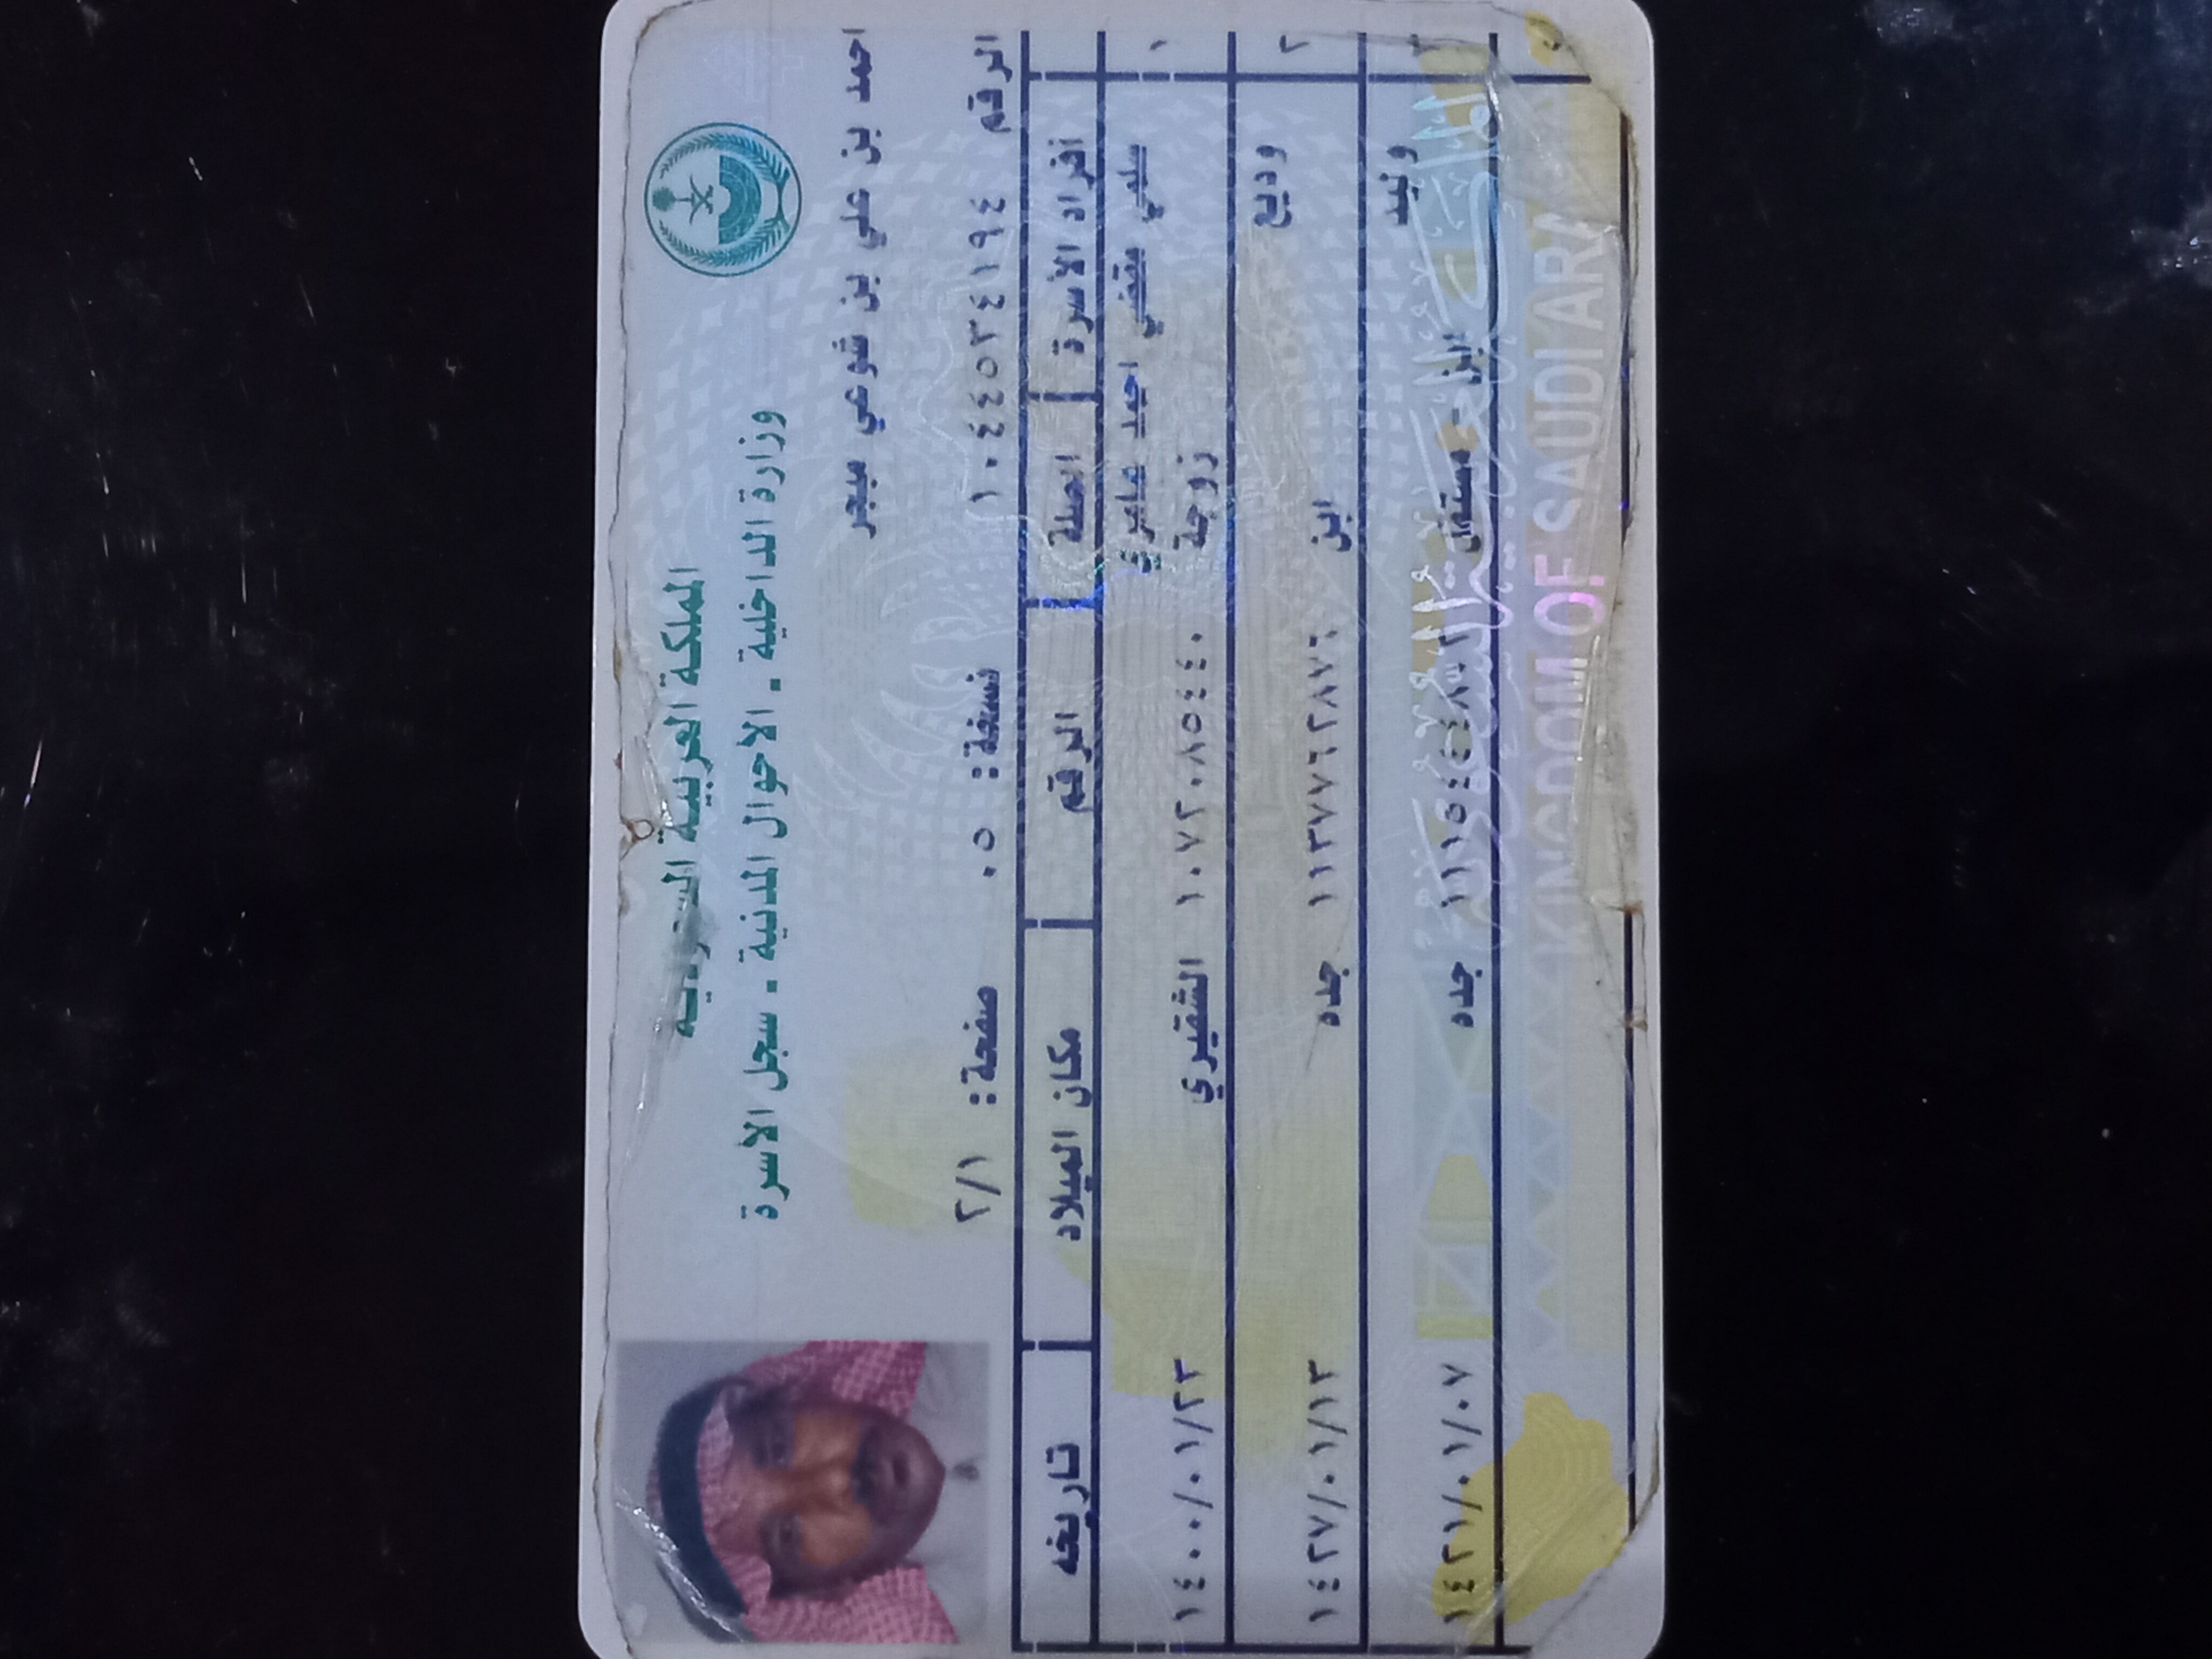 المملكة العربية السعودية
وزارة الداخلية - الاحوال المدنية - سجل الاسرة
احمد بن علي بن شوعي مبجر
الرقم ١٠٤٤٥٣٤١٩٤ نسخة: ٠٥ صفحة: ٢/١
أفراد الأسرة الصلة الرقم مكان الميلاد تاريخه
١ سلمي مقضي احمد عامري
زوجة ١٠٧٢٠٨٥٤٤٠ الشقيري ١٤٠٠/٠١/٢٣
٢ وديع
ابن ١١٣٧٧٦٢٨٧٦ جده ١٤٢٧/٠١/١٣
وليد
ابن - مستقل جده ١٤٢١/٠١/٠٧
KINGDOM OF SAUDI ARA